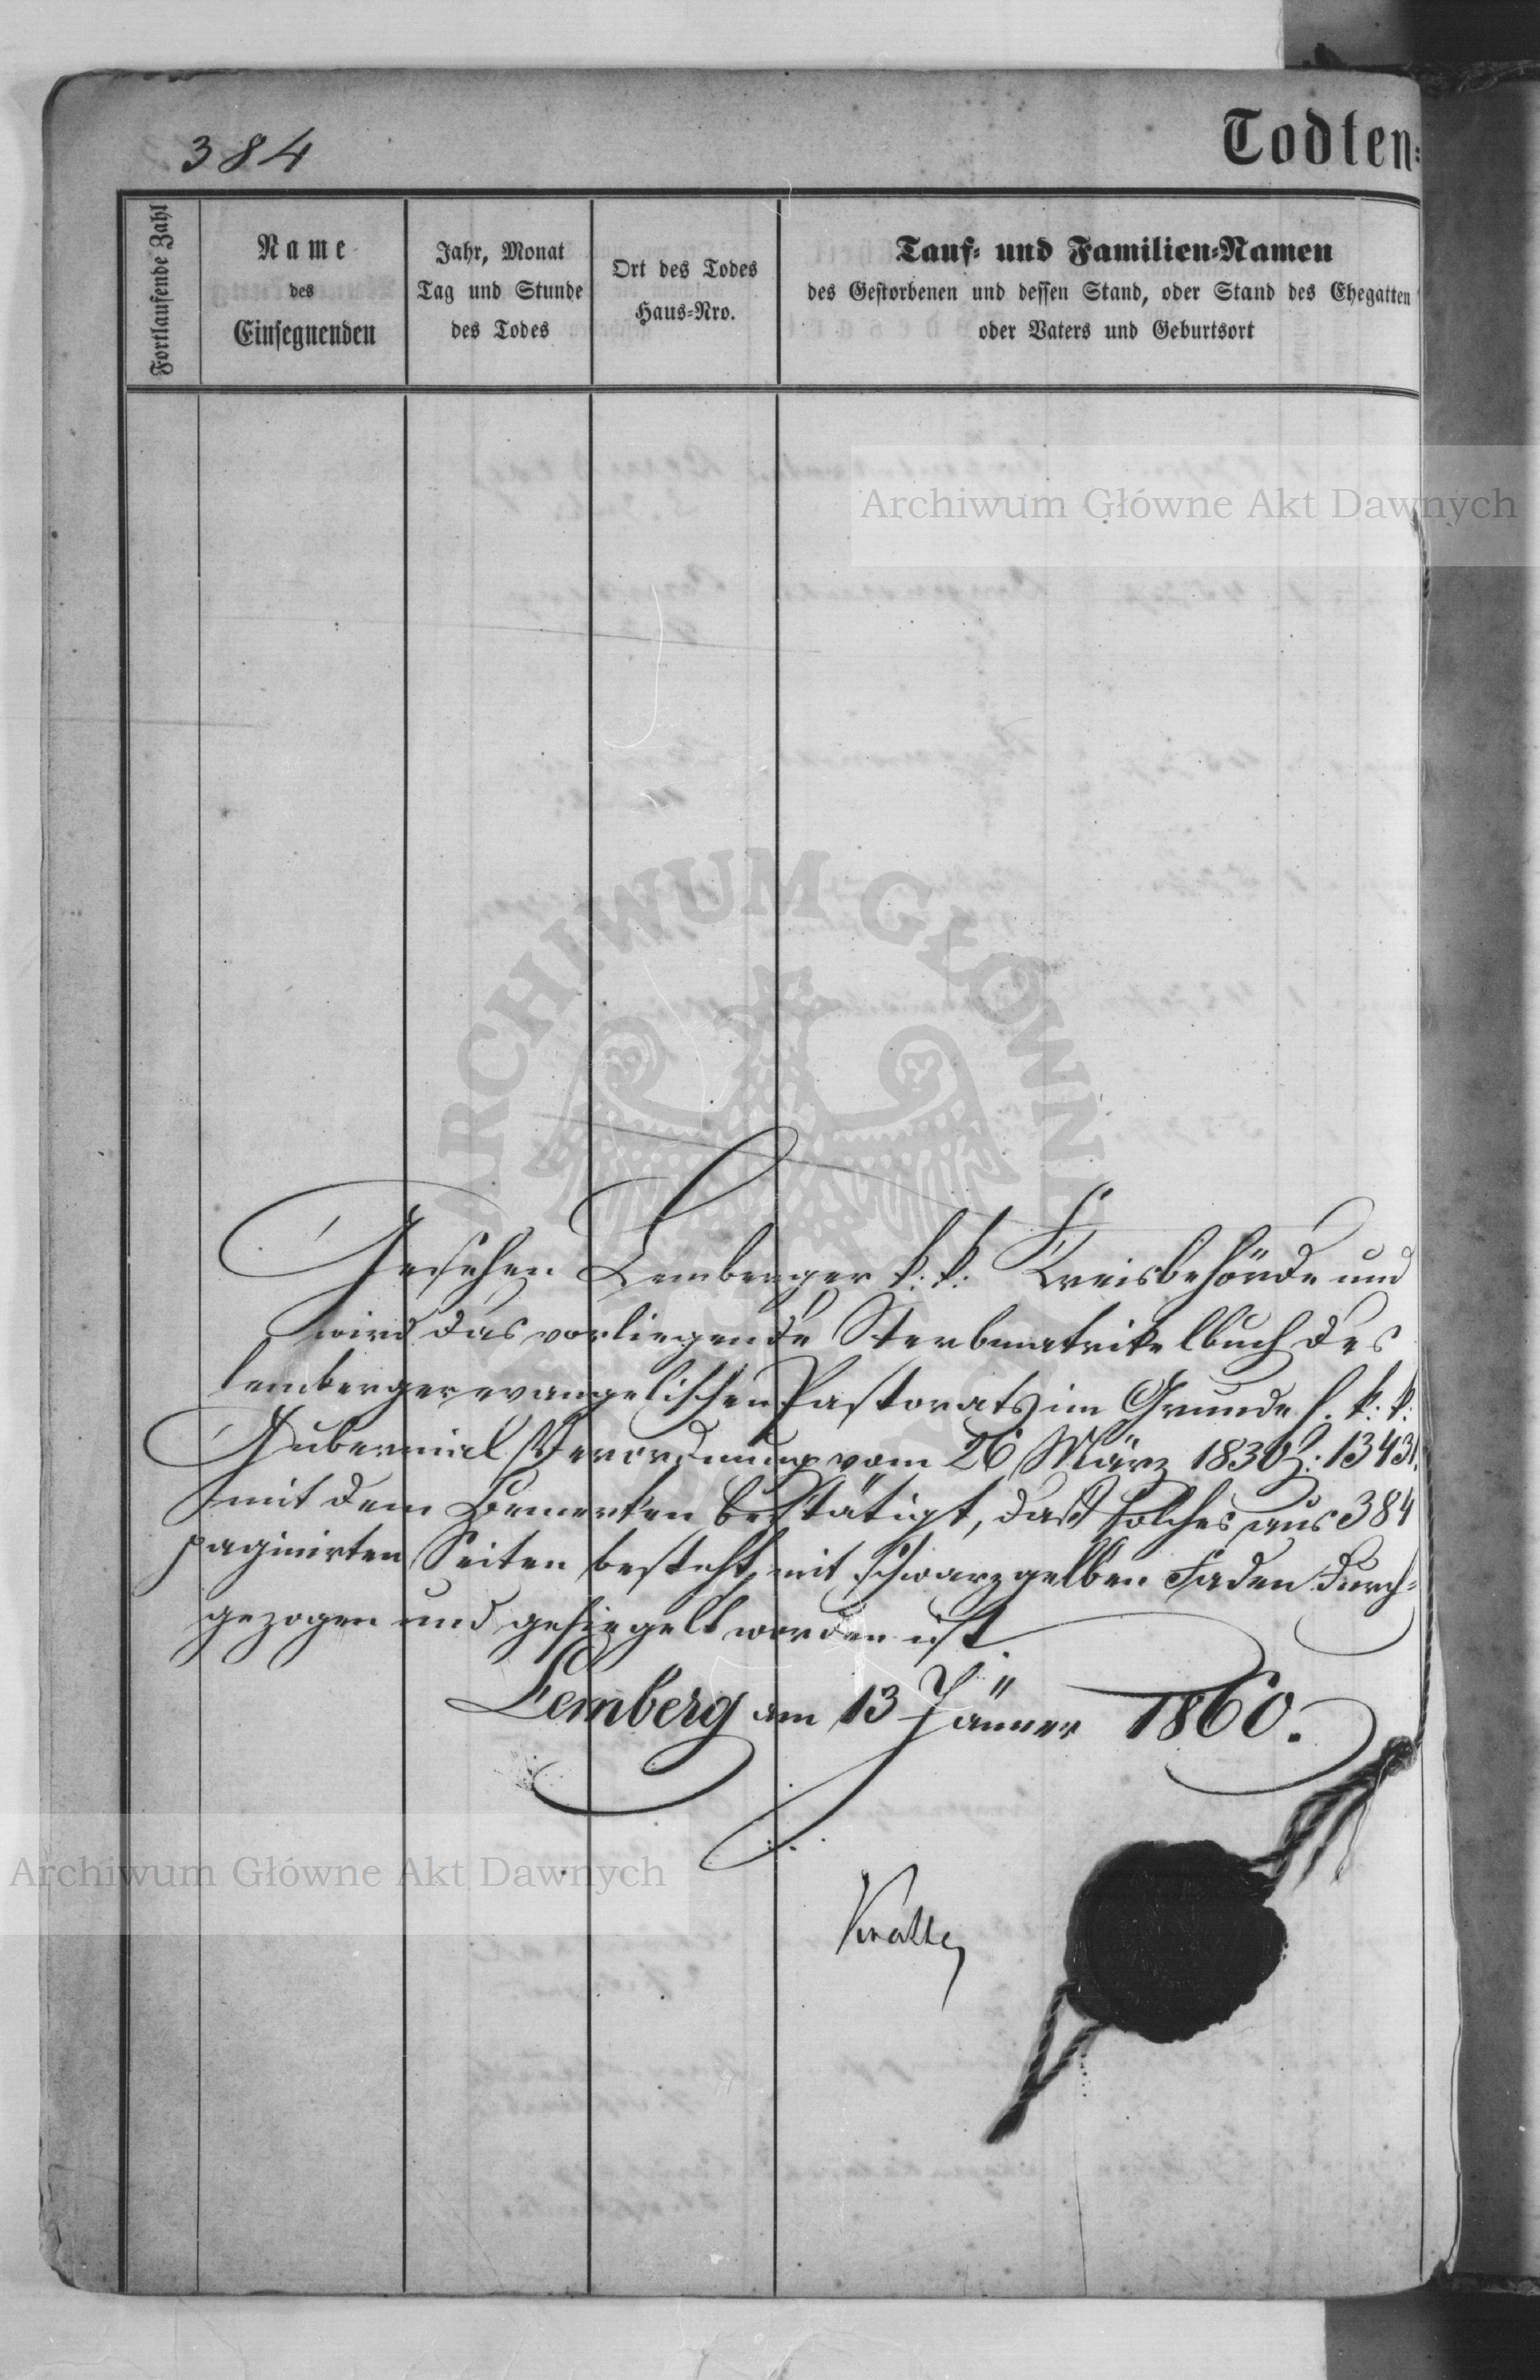 384
Todten-
Fortlaufende Zahl
Name
des
Einsegnenden
Jahr, Monat
Tag und Stunde
des Todes
Ort des Todes
Haus-Nro.
Tauf- und Familien-Namen
des Gestorbenen und dessen Stand, oder Stand des Ehegatten
oder Vaters und Geburtsort
Archiwum Główne Akt Dawnych
Gesehen Lemberger k: k: Kreisbehörde und
wird das vorliegende Sterbmatrikelbuch des
lemberger evangelischen Pastorats im Grunde h. k: k:
Gubernial Verordnung vom 26 März 1830 Z: 13431.
mit dem Bemerken bestätigt, daß solches aus 384
paginirten Seiten besteht, mit schwarzgelben Faden durch-
gezogen und gesiegelt worden ist
Lemberg am 13 Jänner 1860.
Archiwum Główne Akt Dawnych